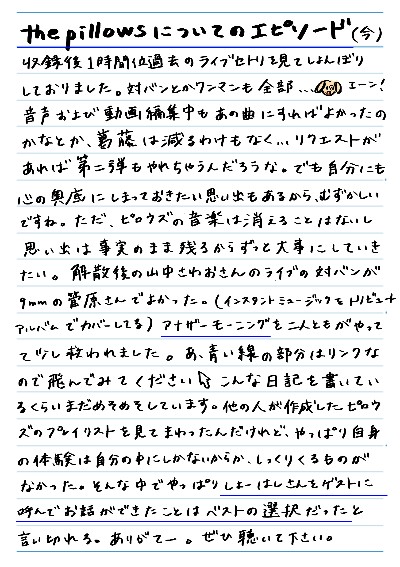 the pillowsについてのエピソード(今)
収録後1時間位過去のライブセトリを見てしょんぼり
しておりました。対バンとかワンマンも全部...エーン!
音声および動画編集中もあの曲にすればよかったの
かなとか、葛藤は減るわけもなく...リクエストが
あれば第二弾もやれちゃうんだろうな。でも自分にも
心の奥底にしまっておきたい思い出もあるから、むずかしい
ですね。ただ、ピロウズの音楽は消えることはないし
思い出は事実のまま残るからずっと大事にしていき
たい。解散後の山中さわおさんのライブの対バンが
9mmの菅原さんでよかった。(インスタントミュージックをトリビュート
アルバムでカバーしてる)アナザーモーニングを二人ともがやって
て少し救われました。あ、青い線の部分はリンクな
ので飛んでみてください こんな日記を書いてい
るくらいまだめそめそしています。他の人が作成したピロウ
ズのプレイリストを見てまわったんだけれど、やっぱり自身
の体験は自分の中にしかないからか、しっくりくるものが
なかった。そんな中でやっぱりしょーはしさんをゲストに
呼んでお話ができたことはベストの選択だったと
言い切れる。ありがてー。ぜひ聴いて下さい。